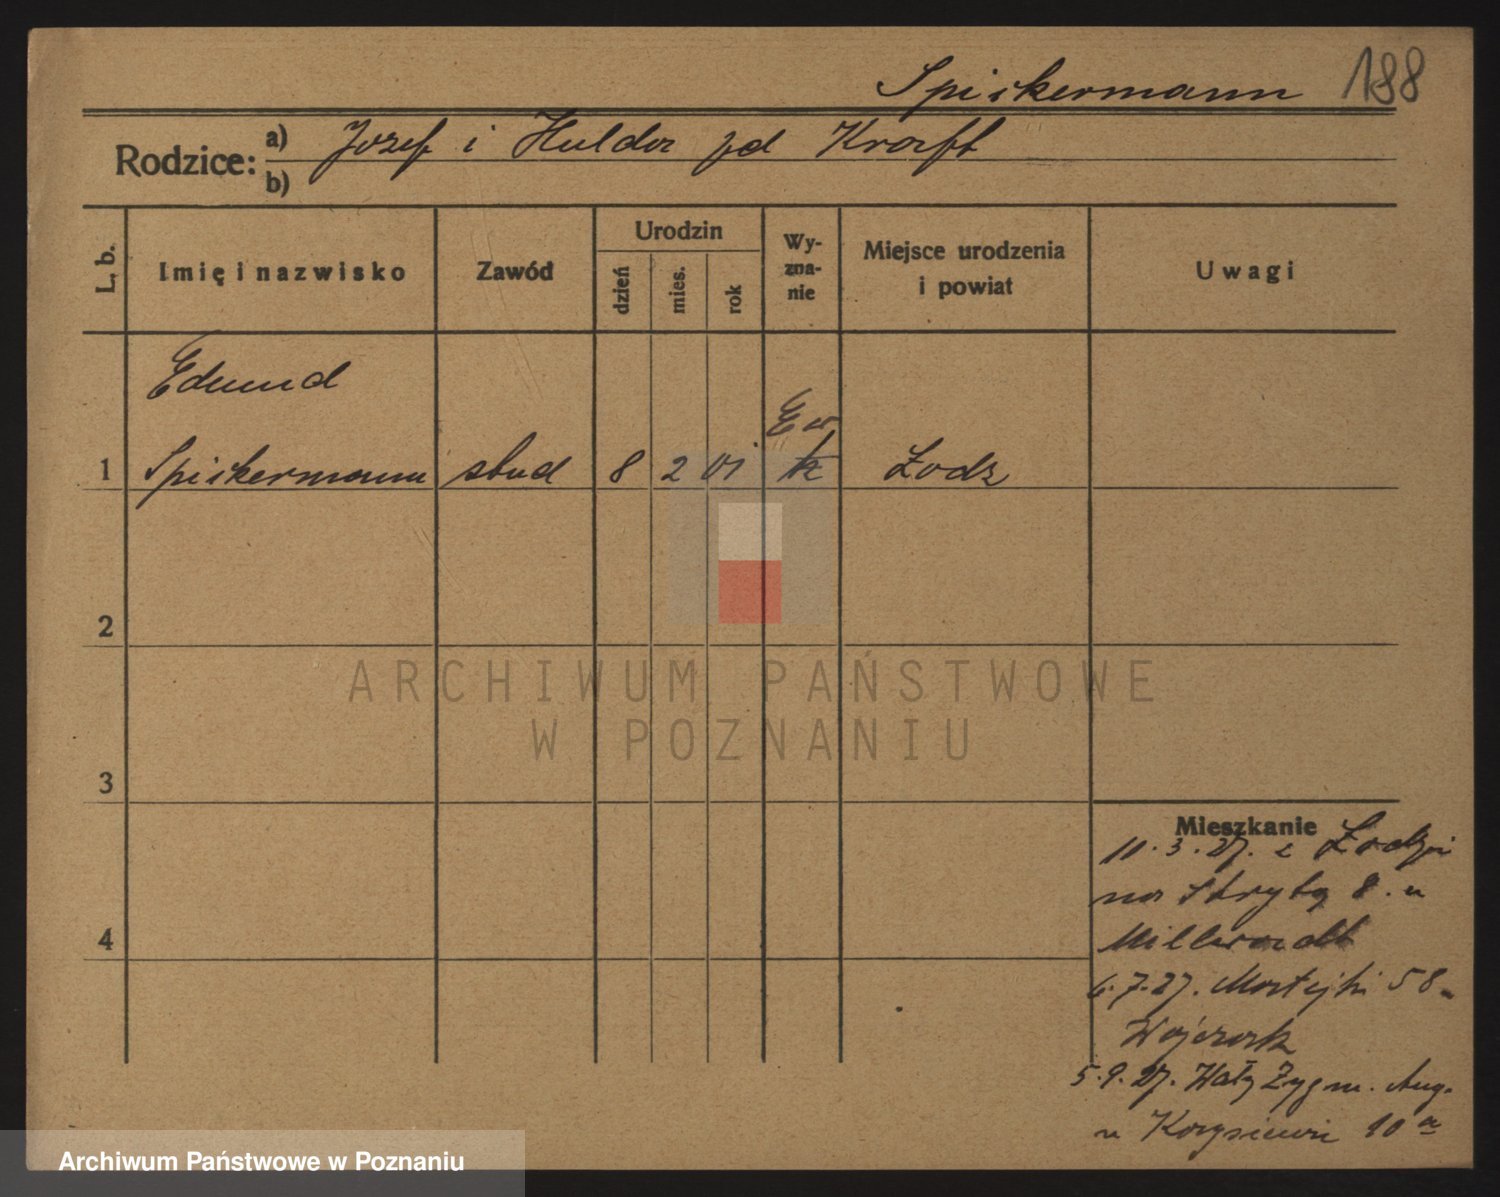 Spickermann 188
Rodzice: a) Jozef i Hulda zd Kraft
b)
L. b.
Imię i nazwisko
Zawód
Urodzin
dzień
mies.
rok
Wy-
zna-
nie
Miejsce urodzenia
i powiat
Uwagi
Edmund
Ew
1 Spickermann stud 8 2 01 k Łodz
2
3
4
Mieszkanie
11.3.27. z Łodzi
na Strybą 8. u
6.7.27. Matejki 58
Wojczak
5.9.27. Wały Zygm. Aug.
u 10a
ARCHIWUM PAŃSTWOWE
W POZNANIU
Archiwum Państwowe w Poznaniu